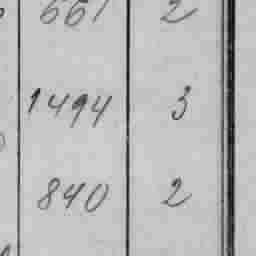 661 2
1494 3
840 2